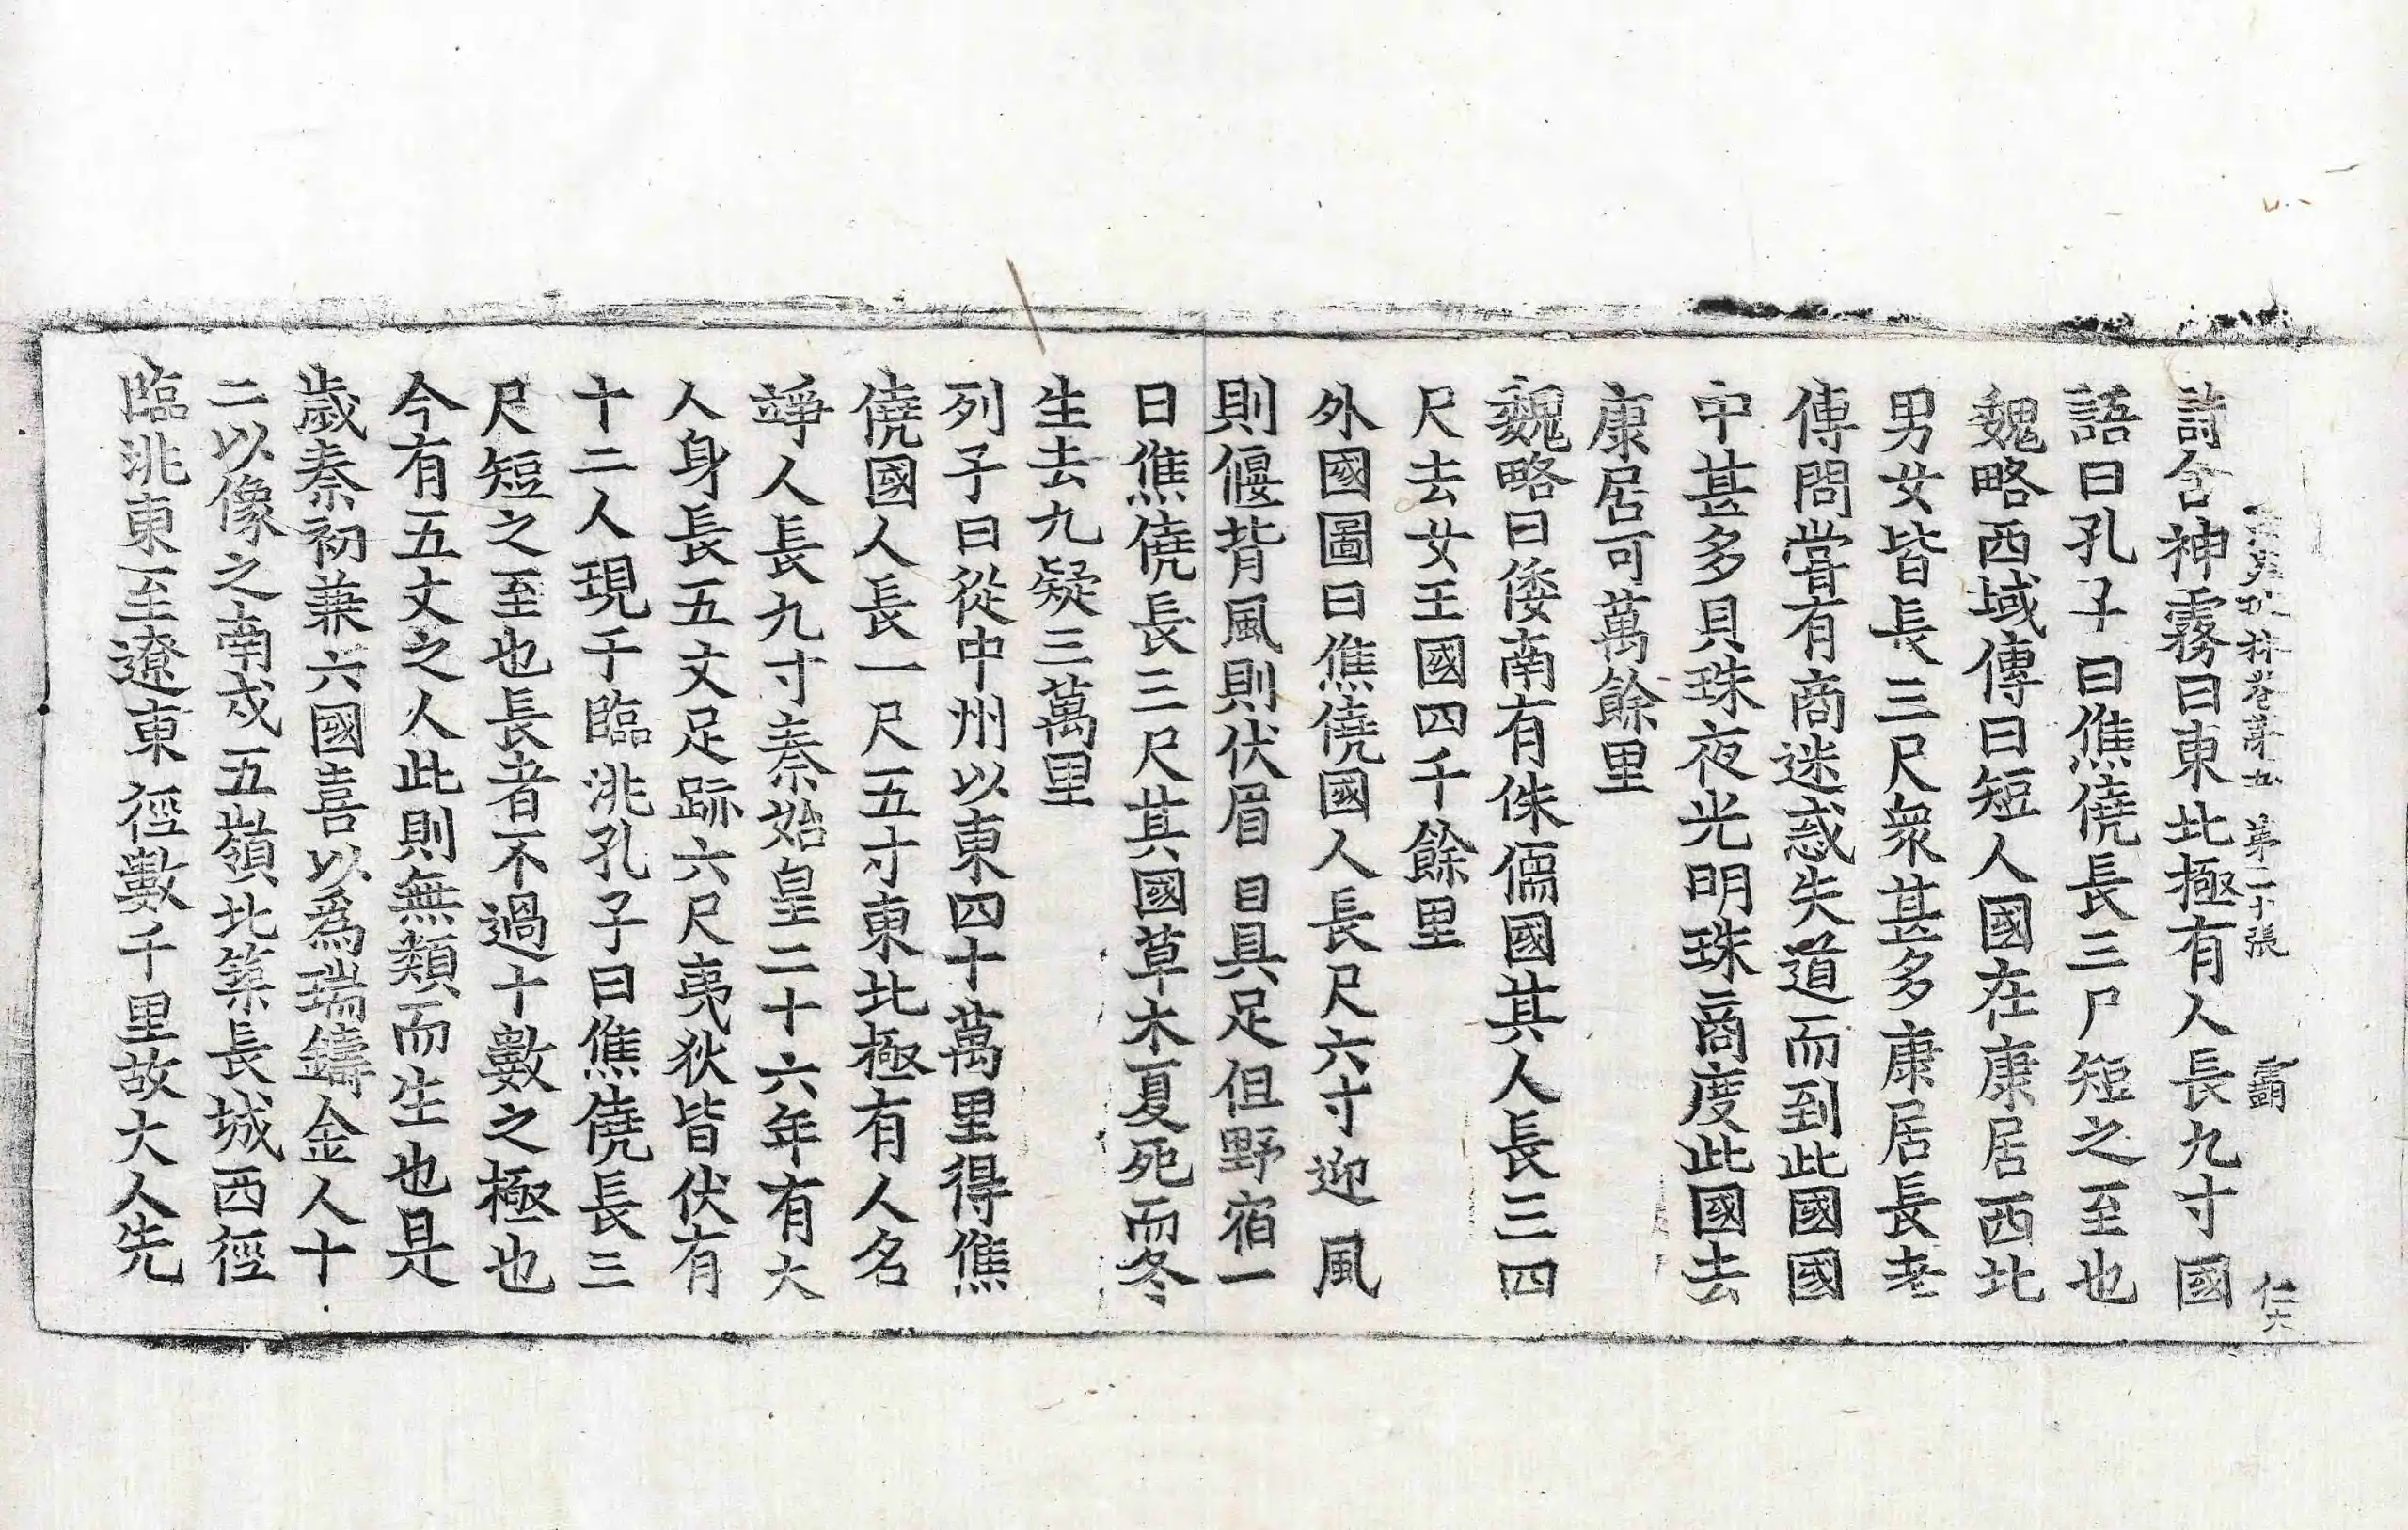 法苑珠林卷第五　第二十張　霸　仁六
詩含神霧曰東北極有人長九寸國
語曰孔子曰僬僥長三尸短之至也
魏略西域傳曰短人國在康居西北
男女皆長三尺衆甚多康居長老
傳問甞有商迷惑失道而到此國國
中甚多貝珠夜光明珠商度此國去
康居可萬餘里
魏略曰倭南有侏儒國其人長三四
尺去女王國四千餘里
外國圖曰僬僥國人長尺六寸迎風
則偃背風則伏眉目具足但野宿一
曰僬僥長三尺其國草木夏死而冬
生去九疑三萬里
列子曰從中州以東四十萬里得僬
僥國人長一尺五寸東北極有人名
竫人長九寸秦始皇二十六年有大
人身長五丈足跡六尺夷狄皆伏有
十二人現于臨洮孔子曰僬僥長三
尺短之至也長者不過十數之極也
今有五丈之人此則無類而生也是
歲秦初兼六國喜以爲瑞鑄金人十
二以像之南戍五嶺北築長城西徑
臨洮東至遼東徑數千里故大人先